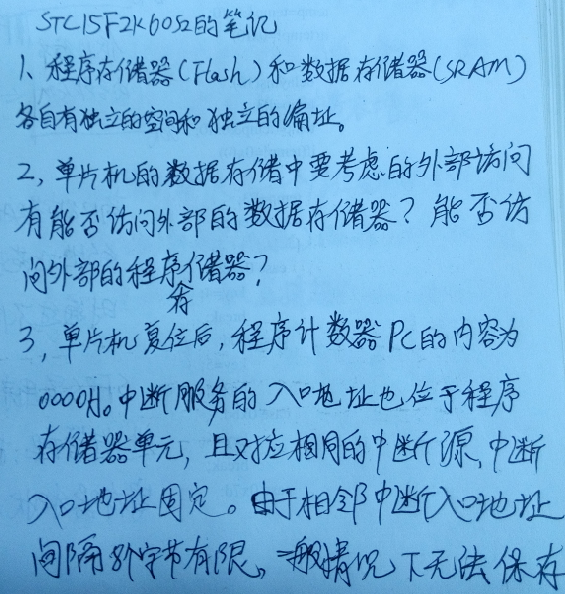 STC15F2K60S2的笔记
1、程序存储器(Flash)和数据存储器(SRAM)
各自有独立的空间和独立的编址。
2,单片机的数据存储中要考虑的外部访问
有能否访问外部的数据存储器?能否访
问外部的程序存储器?
3,单片机复位后,程序计数器PC的内容为
0000H。中断服务的入口地址也位于程序
存储器单元,且对应相同的中断源,中断
入口地址固定。由于相邻中断入口地址
间隔8个字节有限,一般情况下无法保存